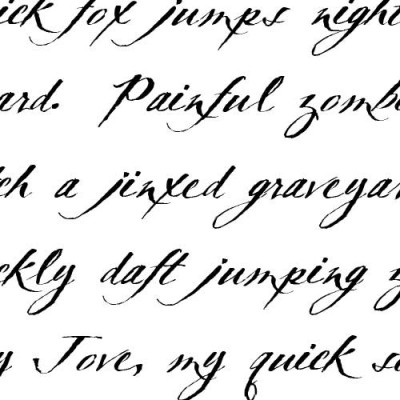 ick fox jumps night
ard. Painful zomb
ch a jinxed graveyar
ckly daft jumping z
y Jove, my quick s